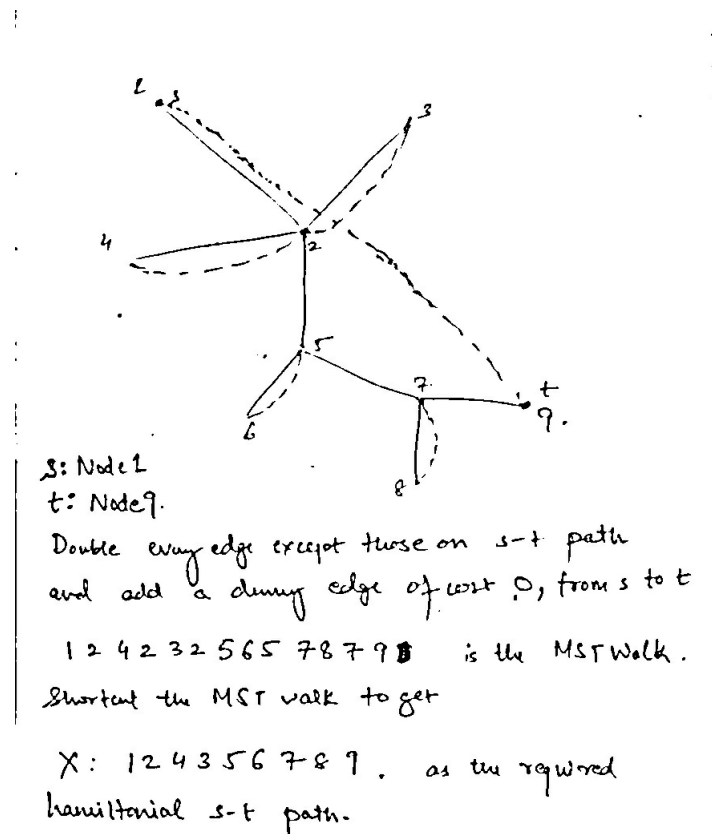 1
s
3
4
2
5
7
t
9.
6
8
S: Node 1
t: Node 9.
Double every edge except those on s-t path
and add a dummy edge of cost 0, from s to t
1 2 4 2 3 2 5 6 5 7 8 7 9 is the MST Walk.
Shortcut the MST walk to get
X: 1 2 4 3 5 6 7 8 9. as the required
hamiltonial s-t path.